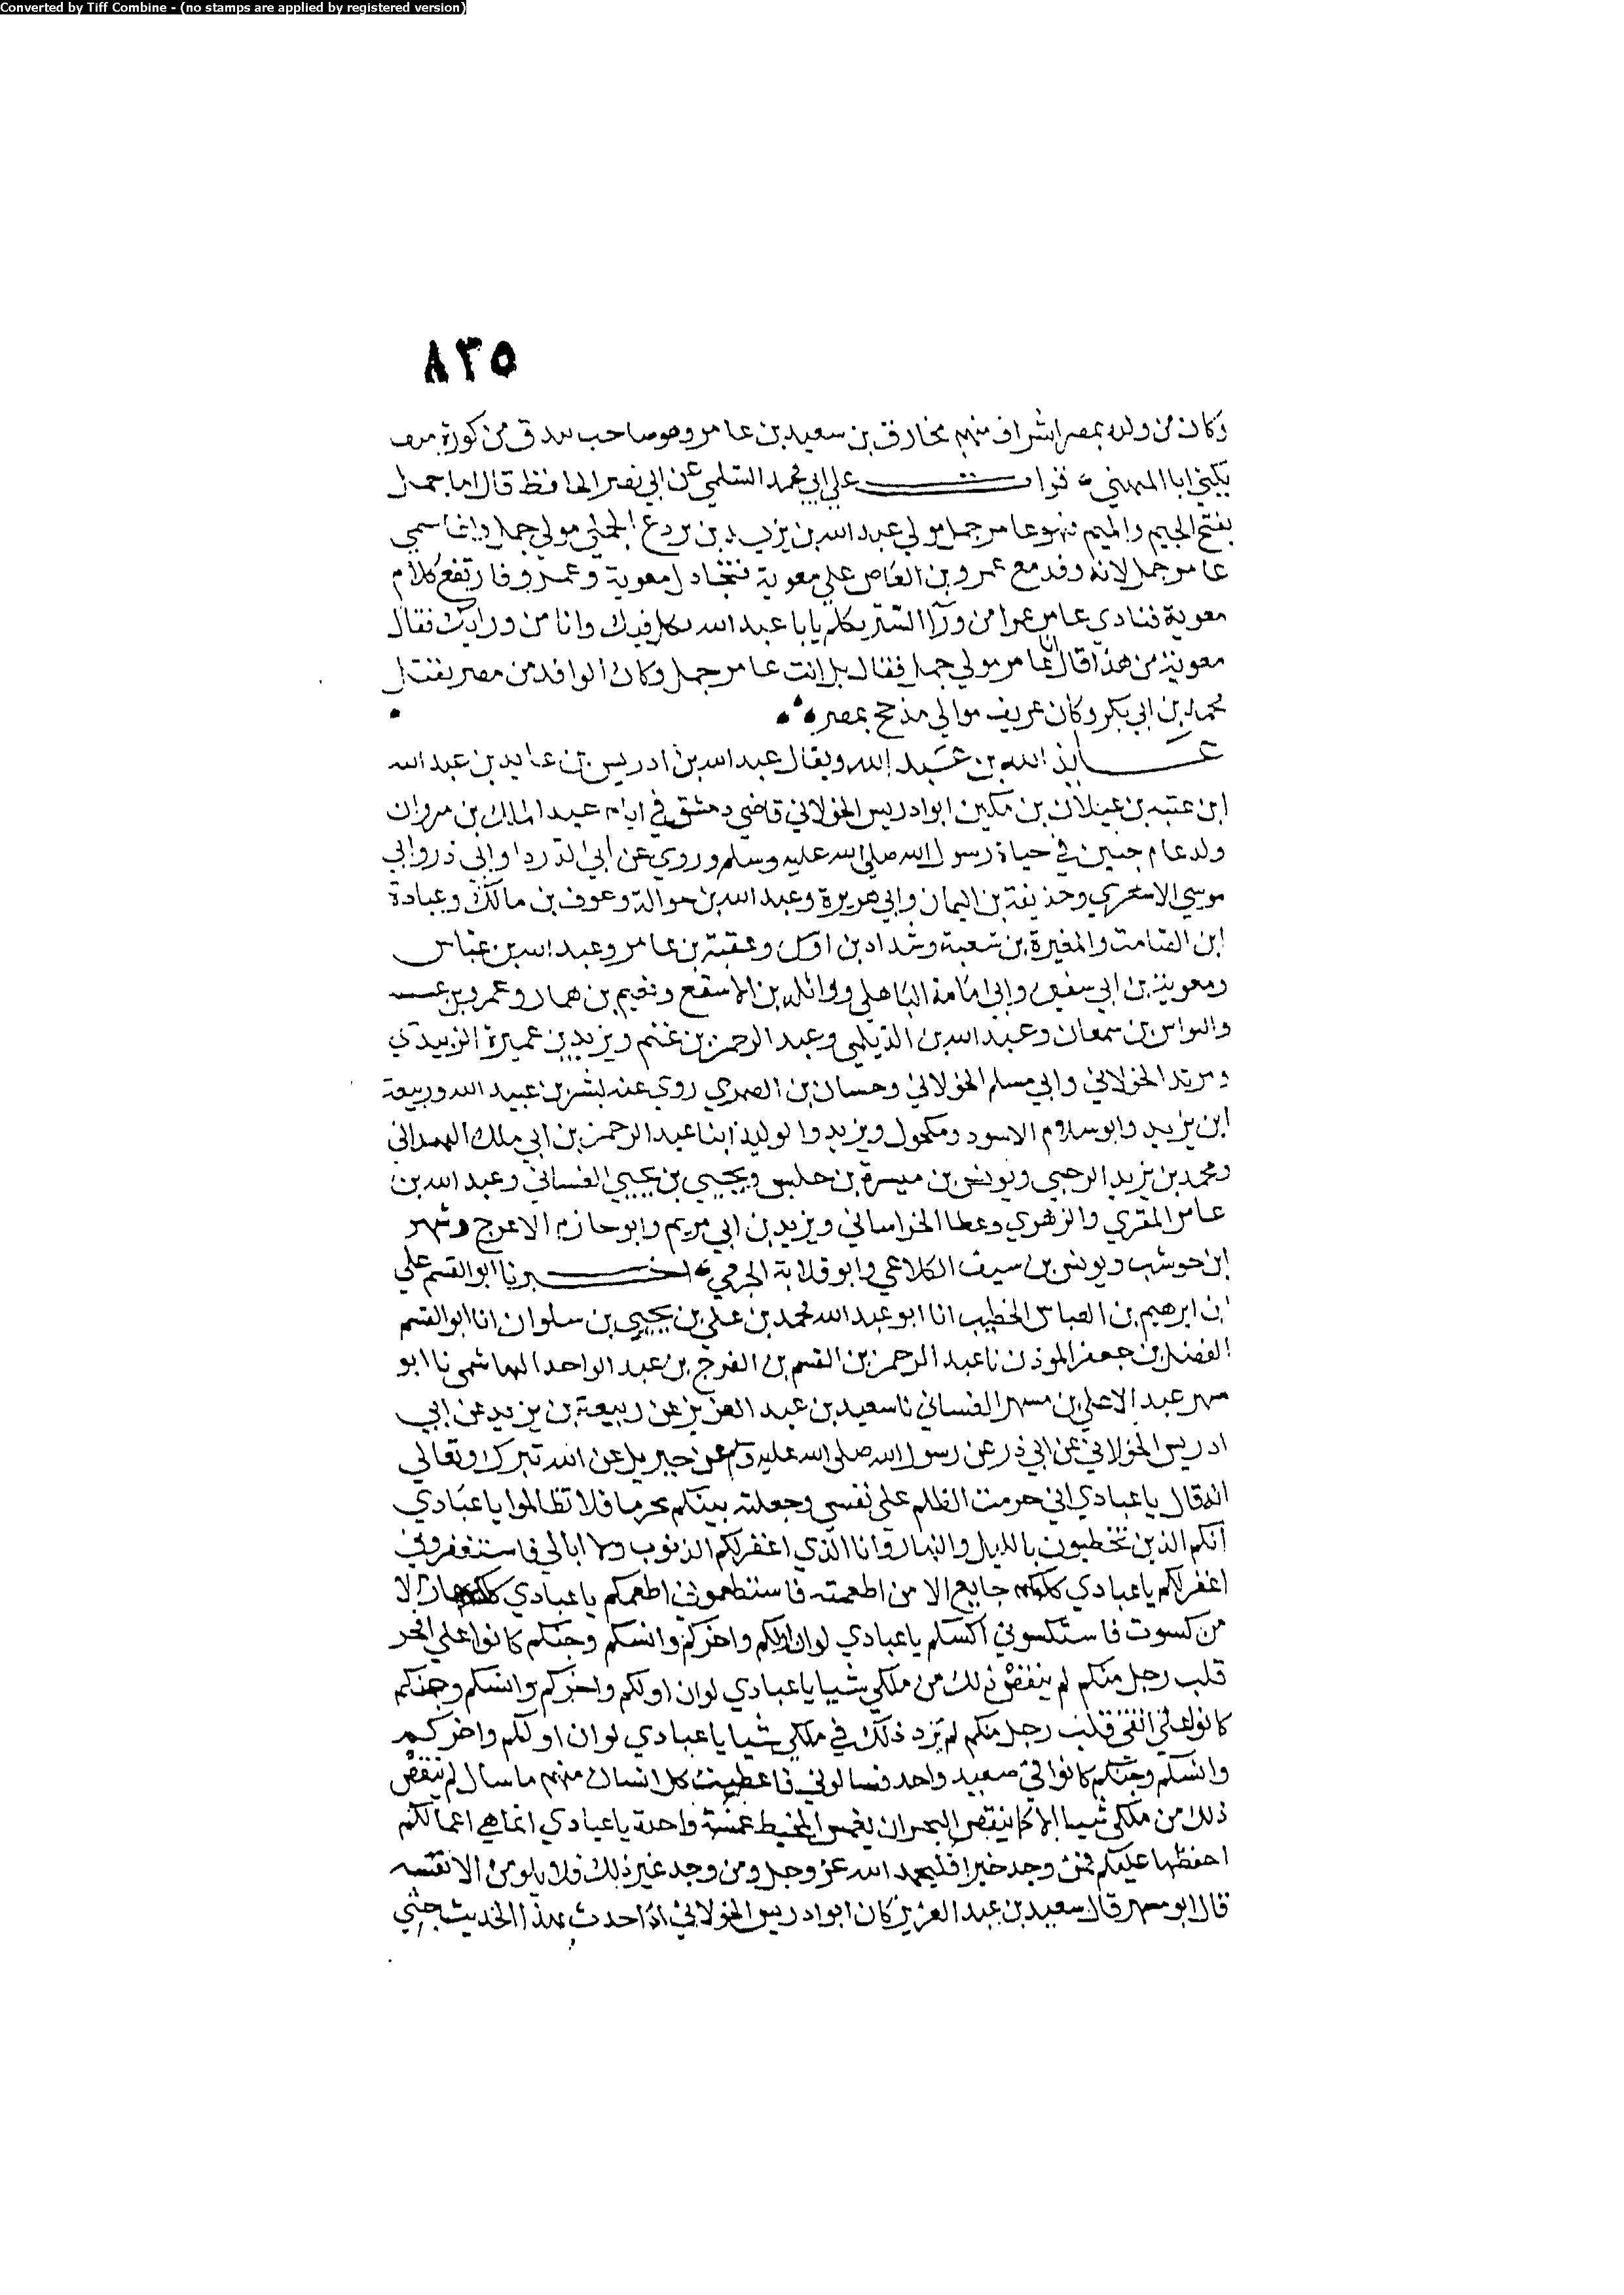 Converted by Tiff Combine - (no stamps are applied by registered version)
٨٣٥
وكان من ولده بمصر اشراف منهم مخارق بن سعيد بن عامر وهو صاحب من كورة
يكنى ابا المهنى قرات على ابي محمد السلمي عن ابي نصر الحافظ قال اما جمل
بفتح الجيم والميم فهو عامر جمل مولى عبد الله بن يزيد بن بردع الجملي مولى جمل وانما سمي
عامر جمل لانه وفد مع عمرو بن العاص على معوية فتجادل معوية وعمرو فارتفع كلام
معوية فنادي عامر عمرا من ورآ الستر تكلم يابا عبد الله بكل فيك وانا من ورايك فقال
معوية من هذا قال انا عامر مولى جمل فقال بل انت عامر جمل وكان الوافد من مصر بقتل
محمد بن ابي بكر وكان عريف موالي مذحج بمصر
عايذ الله بن عبد الله ويقال عبد الله بن ادريس بن عايد بن عبد الله
ابن عتبه بن غيلان بن مكين ابو ادريس الخولاني قاضي دمشق في ايام عبد الملك بن مروان
ولد عام حنين في حياة رسول الله صلى الله عليه وسلم وروي عن ابي الدردا وابي ذر وابي
موسي الاشعري وحذيفة بن اليمان وابي هريرة وعبد الله بن حوالة وعوف بن مالك وعبادة
ابن الصامت والمغيرة بن شعبة وشداد بن اوس وعقبة بن عامر وعبد الله بن عباس
ومعوية بن ابي سفين وابي امامة الباهلي وواثله بن الاسقع ونعيم بن همار وعمرو بن عبسه
والنواس بن سمعان وعبد الله بن الديلمي وعبد الرحمن بن غنم ويزيد بن عميرة الزبيدي
ومرثد الخولاني وابي مسلم الخولاني وحسان بن الضمري روي عنه بشر بن عبيد الله وربيعة
ابن يزيد وابو سلام الاسود ومكحول ويزيد والوليد ابنا عبد الرحمن بن ابي ملك الهمداني
ومحمد بن يزيد الرحبي ويونس بن ميسرة بن حلبس ويحيي بن يحيي الغساني وعبد الله بن
عامر المقري والزهري وعطا الخراساني ويزيد بن ابي مريم وابو حازم الاعرج وشهر
ابن حوشب ويونس بن سيف الكلاعي وابو قلابة الجرمي اخبرنا ابو القسم علي
بن ابرهيم بن العباس الخطيب انا ابو عبد الله محمد بن علي بن يحيي بن سلوان انا ابو القسم
الفضل بن جعفر الموذن نا عبد الرحمن بن القسم بن الفرج بن عبد الواحد الهاشمي نا ابو
مسهر عبد الاعلي بن مسهر الغساني نا سعيد بن عبد العزيز عن ربيعة بن يزيد عن ابي
ادريس الخولاني عن ابي ذر عن رسول الله صلى الله عليه وسلم عن جبريل عن الله تبرك وتعالي
انه قال يا عبادي اني حرمت الظلم على نفسي وجعلته بينكم محرما فلا تظالموا يا عبادي
انكم الذين تخطيون بالليل والنهار وانا الذي اغفر لكم الذنوب ولا ابالي فاستغفروني
اغفر لكم يا عبادي كلكم جايع الا من اطعمته فاستطعموني اطعمكم يا عبادي كلكم عار الا
من كسوت فاستكسوني اكسكم يا عبادي لو ان اولكم واخركم وانسكم وجنكم كانوا على افجر
قلب رجل منكم لم ينقص ذلك من ملكي شيا يا عبادي لو ان اولكم واخركم وانسكم وجنكم
كانوا على اتقى قلب رجل منكم لم يزد ذلك في ملكي شيا يا عبادي لو ان اولكم واخركم
وانسكم وجنكم كانوا في صعيد واحد فسالوني فاعطيت كل انسان منهم ما سال لم ينقص
ذلك من ملكي شيا الا كما ينقص البحر ان يغمس المخيط غمسة واحدة يا عبادي انما هي اعمالكم
احفظها عليكم فمن وجد خيرا فليحمد الله عز وجل ومن وجد غير ذلك فلا يلومن الا نفسه
قال ابو مسهر قال سعيد بن عبد العزيز كان ابو ادريس الخولاني اذا حدث بهذا الحديث جثي